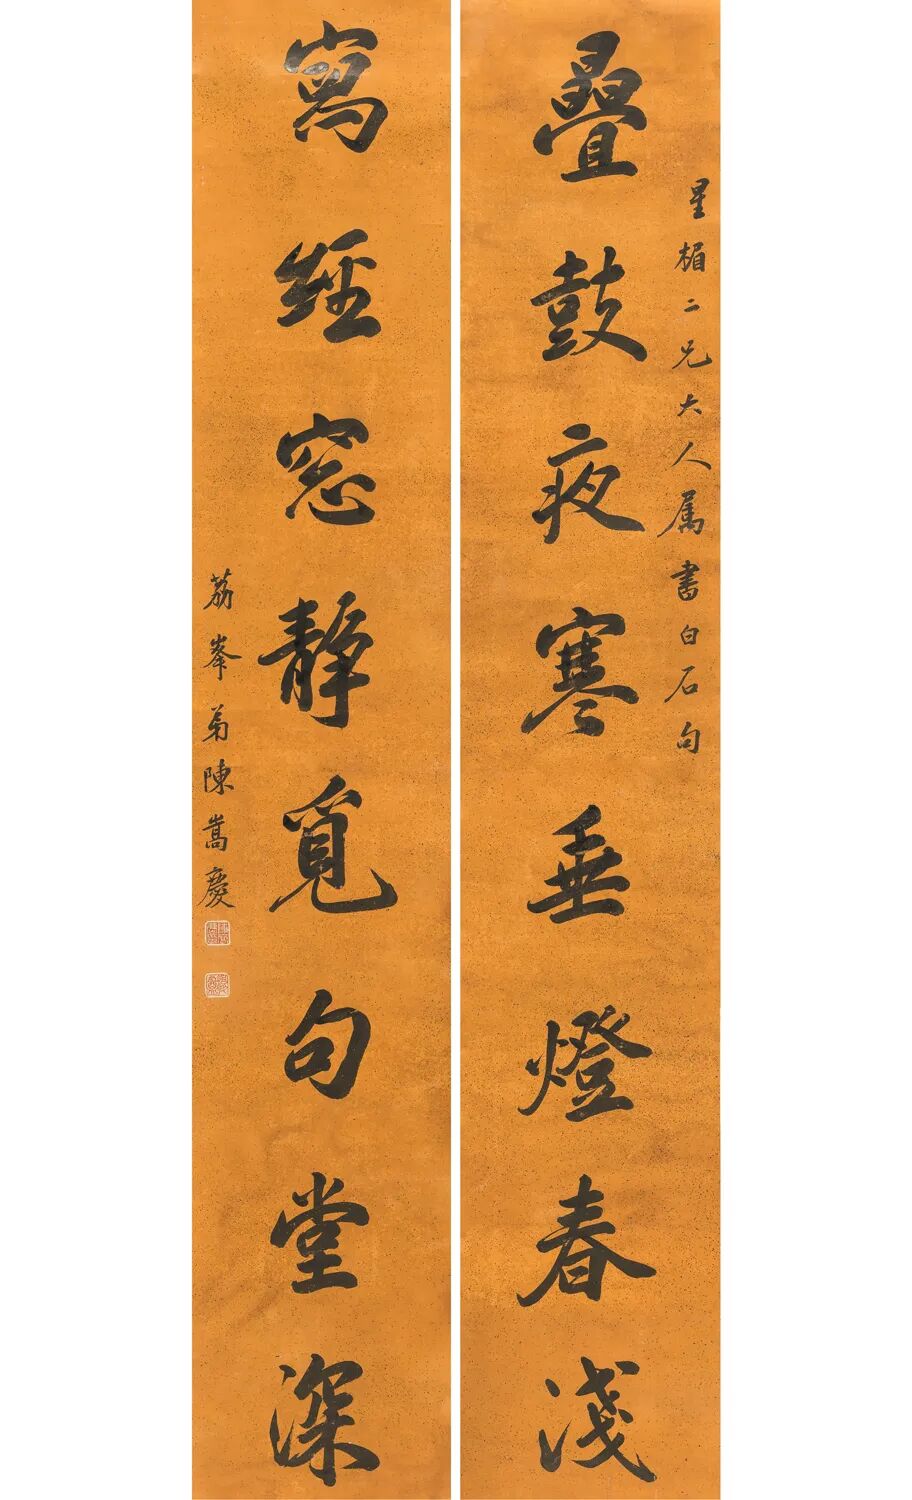 星楣二兄大人属書白石句
疊鼓夜寒垂燈春淺
寫經窓靜覓句堂深
荔峯弟陳嵩慶